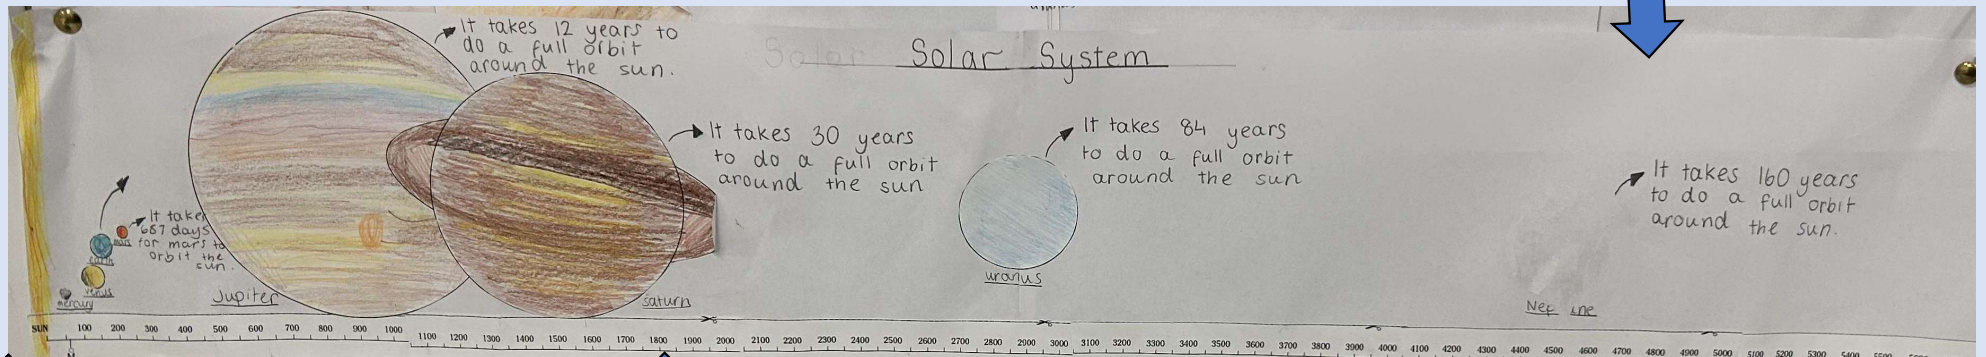 Solar Solar System
It takes 12 years to
do a full orbit
around the sun.
It takes 30 years
to do a full orbit
around the sun
It takes 84 years
to do a full orbit
around the sun
It takes 160 years
to do a full orbit
around the sun.
It takes
687 days
for mars to
orbit the
sun.
mars
earth
venus
mercury
Jupiter
saturn
uranus
Nep une
SUN 100 200 300 400 500 600 700 800 900 1000 1100 1200 1300 1400 1500 1600 1700 1800 1900 2000 2100 2200 2300 2400 2500 2600 2700 2800 2900 3000 3100 3200 3300 3400 3500 3600 3700 3800 3900 4000 4100 4200 4300 4400 4500 4600 4700 4800 4900 5000 5100 5200 5300 5400